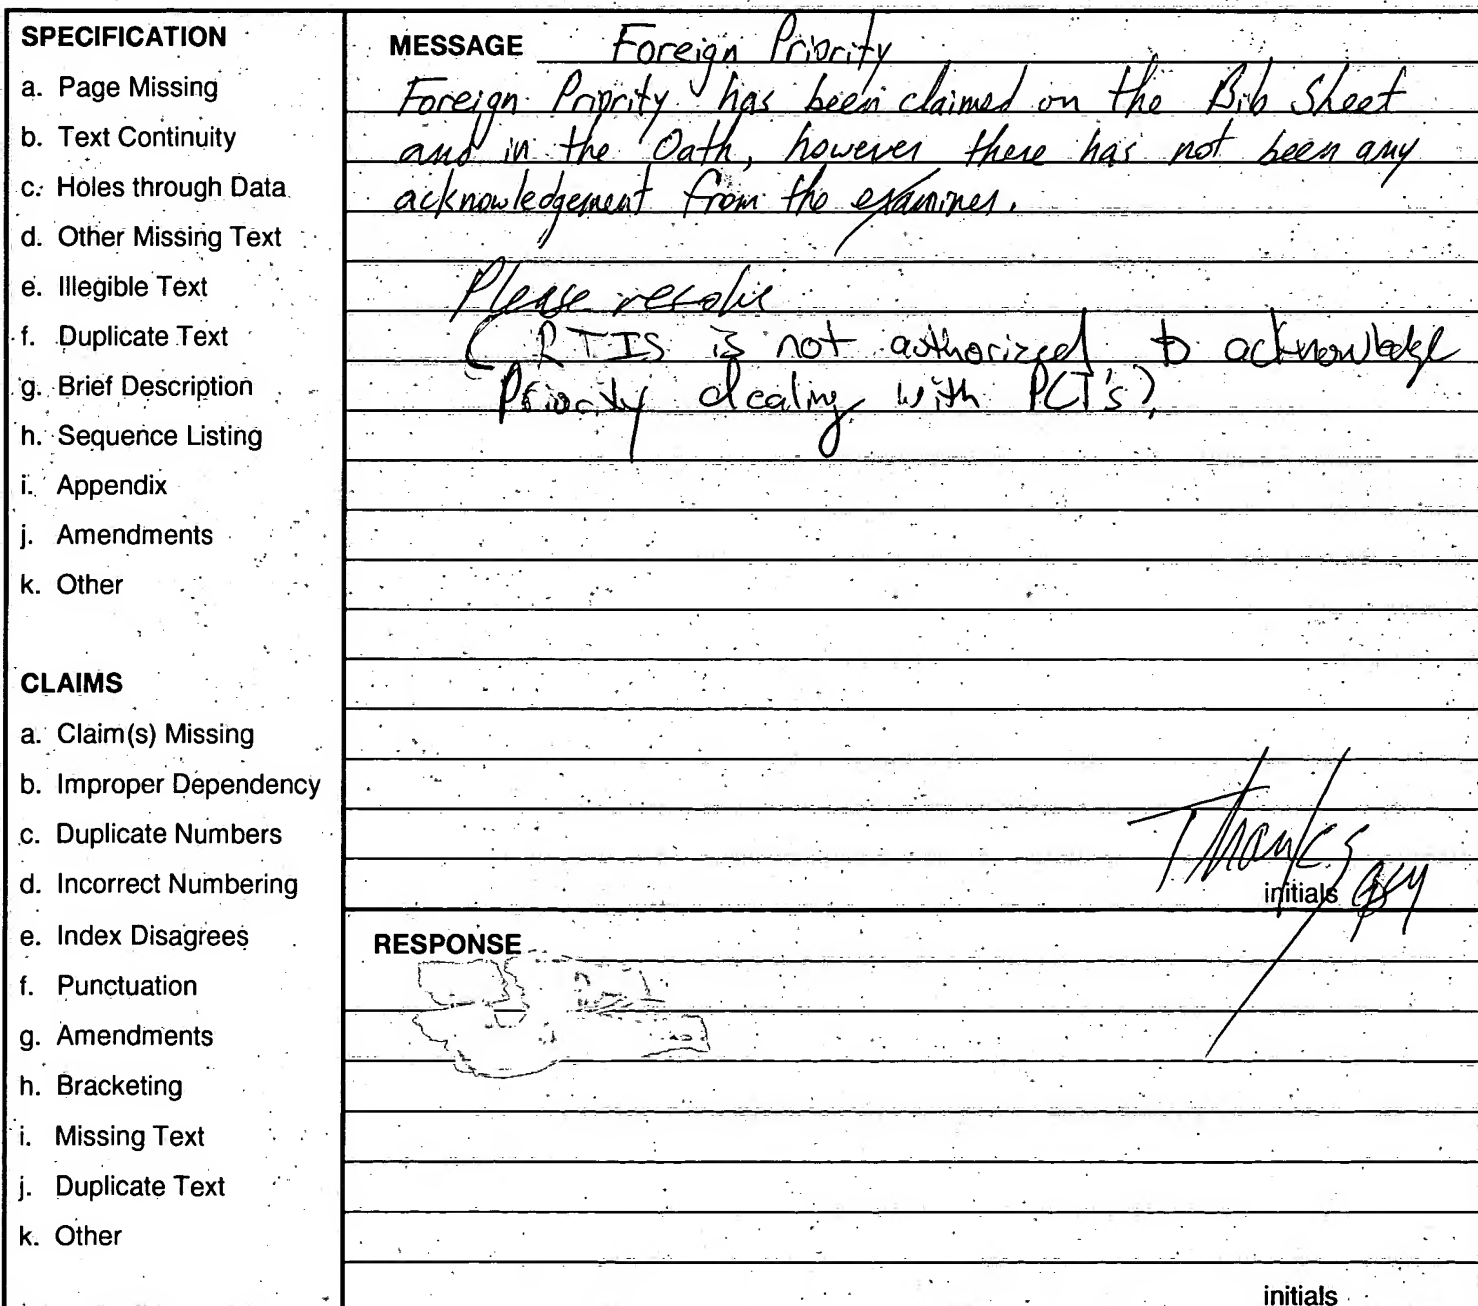 SPECIFICATION
a. Page Missing
b. Text Continuity
c. Holes through Data
d. Other Missing Text
e. Illegible Text
f. Duplicate Text
g. Brief Description
h. Sequence Listing
i. Appendix
j. Amendments
k. Other
CLAIMS
a. Claim(s) Missing
b. Improper Dependency
c. Duplicate Numbers
d. Incorrect Numbering
e. Index Disagrees
f. Punctuation
g. Amendments
h. Bracketing
i. Missing Text
j. Duplicate Text
k. Other
MESSAGE Foreign Priority
Foreign Priority has been claimed on the Bib Sheet
and in the Oath, however there has not been any
acknowledgement from the examiner.
Please resolve
(RTIS is not authorized to acknowledge
Priority dealing with PCT's)
Thanks
initials
RESPONSE
initials